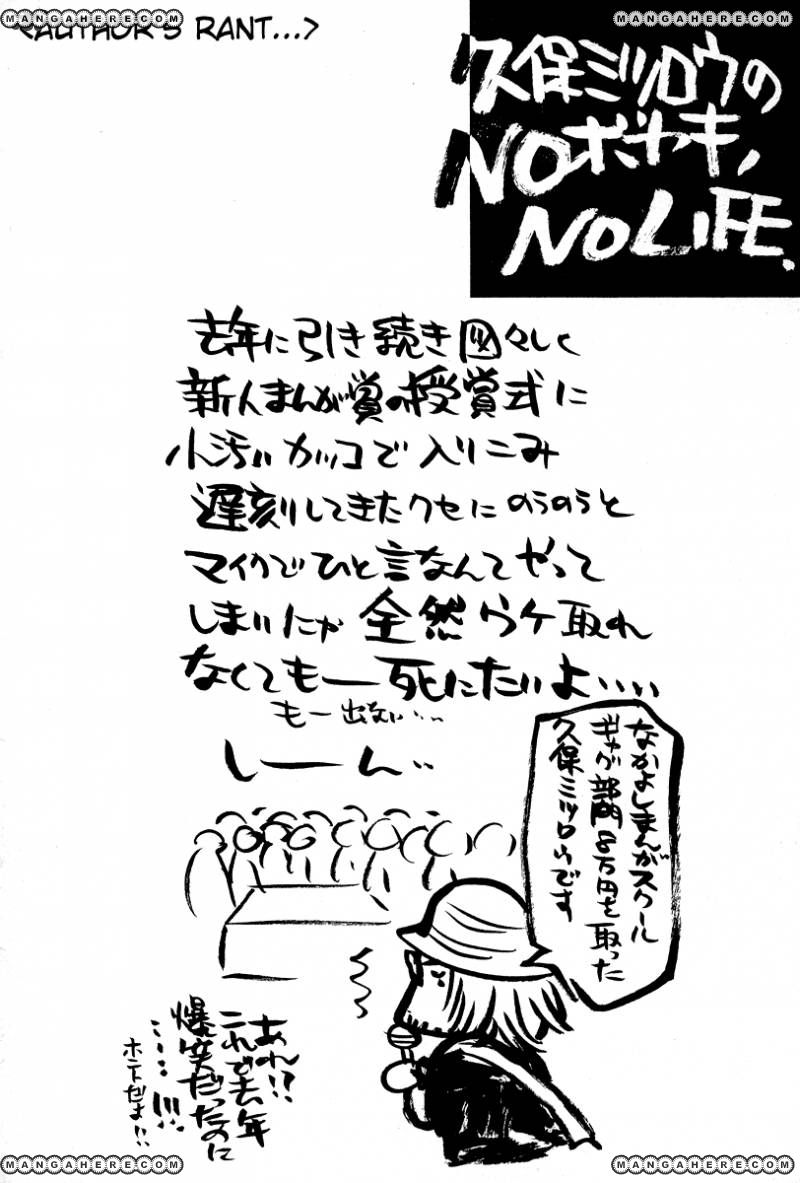 MANGAHERE.COM
MANGAHERE.COM
<AUTHOR'S RANT...>
久保ミツロウの
NOボヤキ、
NO LIFE.
去年に引き続き図々しく
新人まんが賞の授賞式に
小汚いカッコで入りこみ
遅刻してきたクセにのうのうと
マイクでひと言なんてやって
しまいたが全然ウケ取れ
なくてもー死にたいよ‥‥
もー出ない…
しーん‥
なかよしまんがスクール
ギャグ部門8万円を取った
久保ミツロウです
あれ!?
これで去年
爆笑だったのに
…‥!!!
ホントだよ!!
MANGAHERE.COM
MANGAHERE.COM